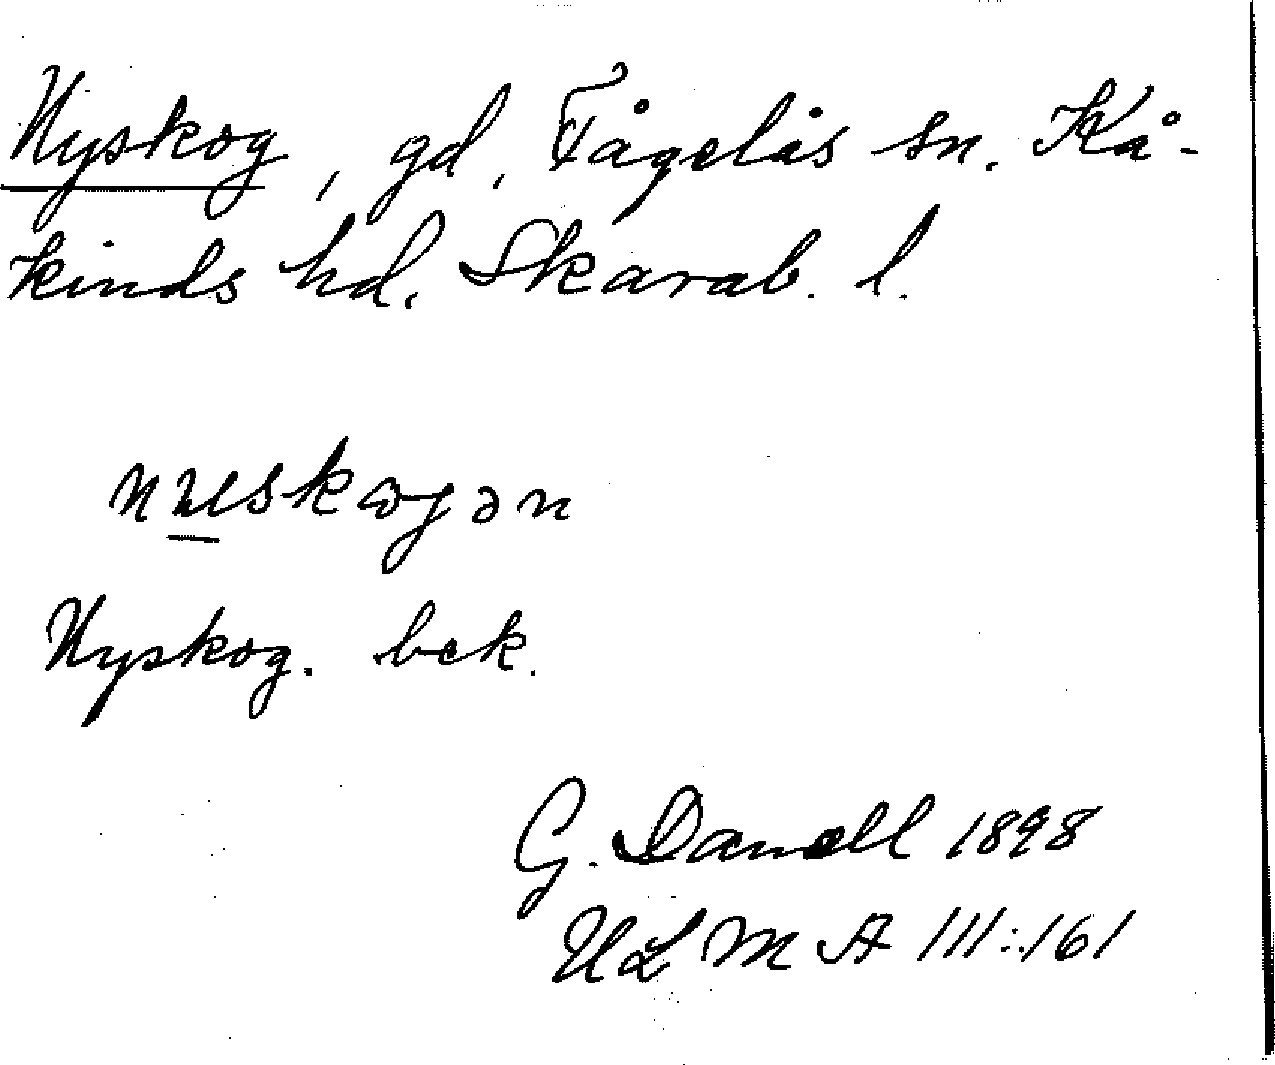 Nyskog, gd. Fågelås sn. Kå-
kinds hd. Skarab. l.
Nyskog. bek.
G. Danell 1898
ULMA 111:161